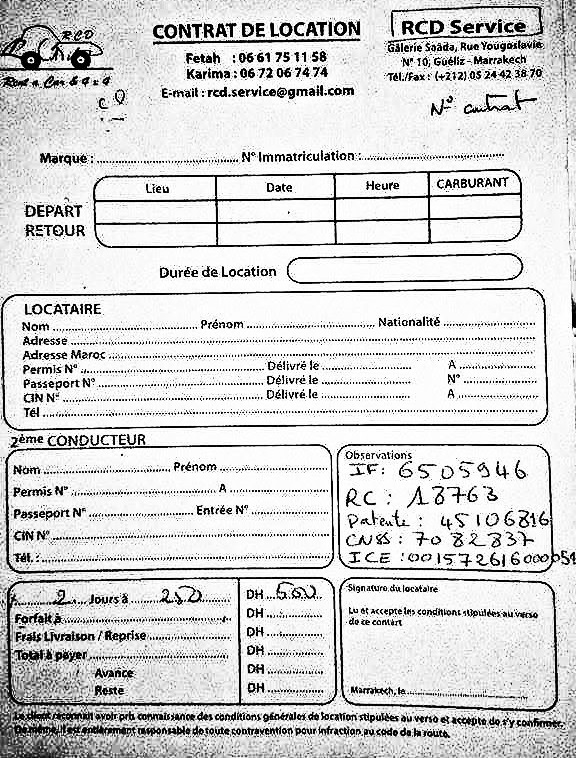 RCD
Rent a Car & 4 x 4
CONTRAT DE LOCATION
Fetah : 06 61 75 11 58
Karima : 06 72 06 74 74
E-mail : rcd.service@gmail.com
RCD Service
Galerie Saâda, Rue Yougoslavie
N° 10, Guéliz - Marrakech
Tél./Fax : (+212) 05 24 42 38 70
N° contrat
Marque : ........ N° Immatriculation : ........
Lieu Date Heure CARBURANT
DEPART
RETOUR
Durée de Location
LOCATAIRE
Nom ........ Prénom ........ Nationalité ........
Adresse ........
Adresse Maroc ........
Permis N° ........ Délivré le ........ A ........
Passeport N° ........ Délivré le ........ N° ........
CIN N° ........ Délivré le ........ A ........
Tél ........
2ème CONDUCTEUR
Nom ........ Prénom ........
Permis N° ........ A ........
Passeport N° ........ Entrée N° ........
CIN N° ........
Tél. : ........
Observations
IF: 6505946
RC : 18763
Patente : 45106816
CNSS : 7082837
ICE : 001572616000054
2 Jours à 250 DH 500
Forfait à ........ DH ........
Frais Livraison / Reprise ........ DH ........
Total à payer ........ DH ........
Avance DH ........
Reste DH ........
Signature du locataire
Lu et accepte les conditions stipulées au verso
de ce contart
Marrakech, le ........
Le client reconnait avoir pris connaissance des conditions générales de location stipulées au verso et accepte de s'y confirmer.
De même, il est entièrement responsable de toute contravention pour infraction au code de la route.